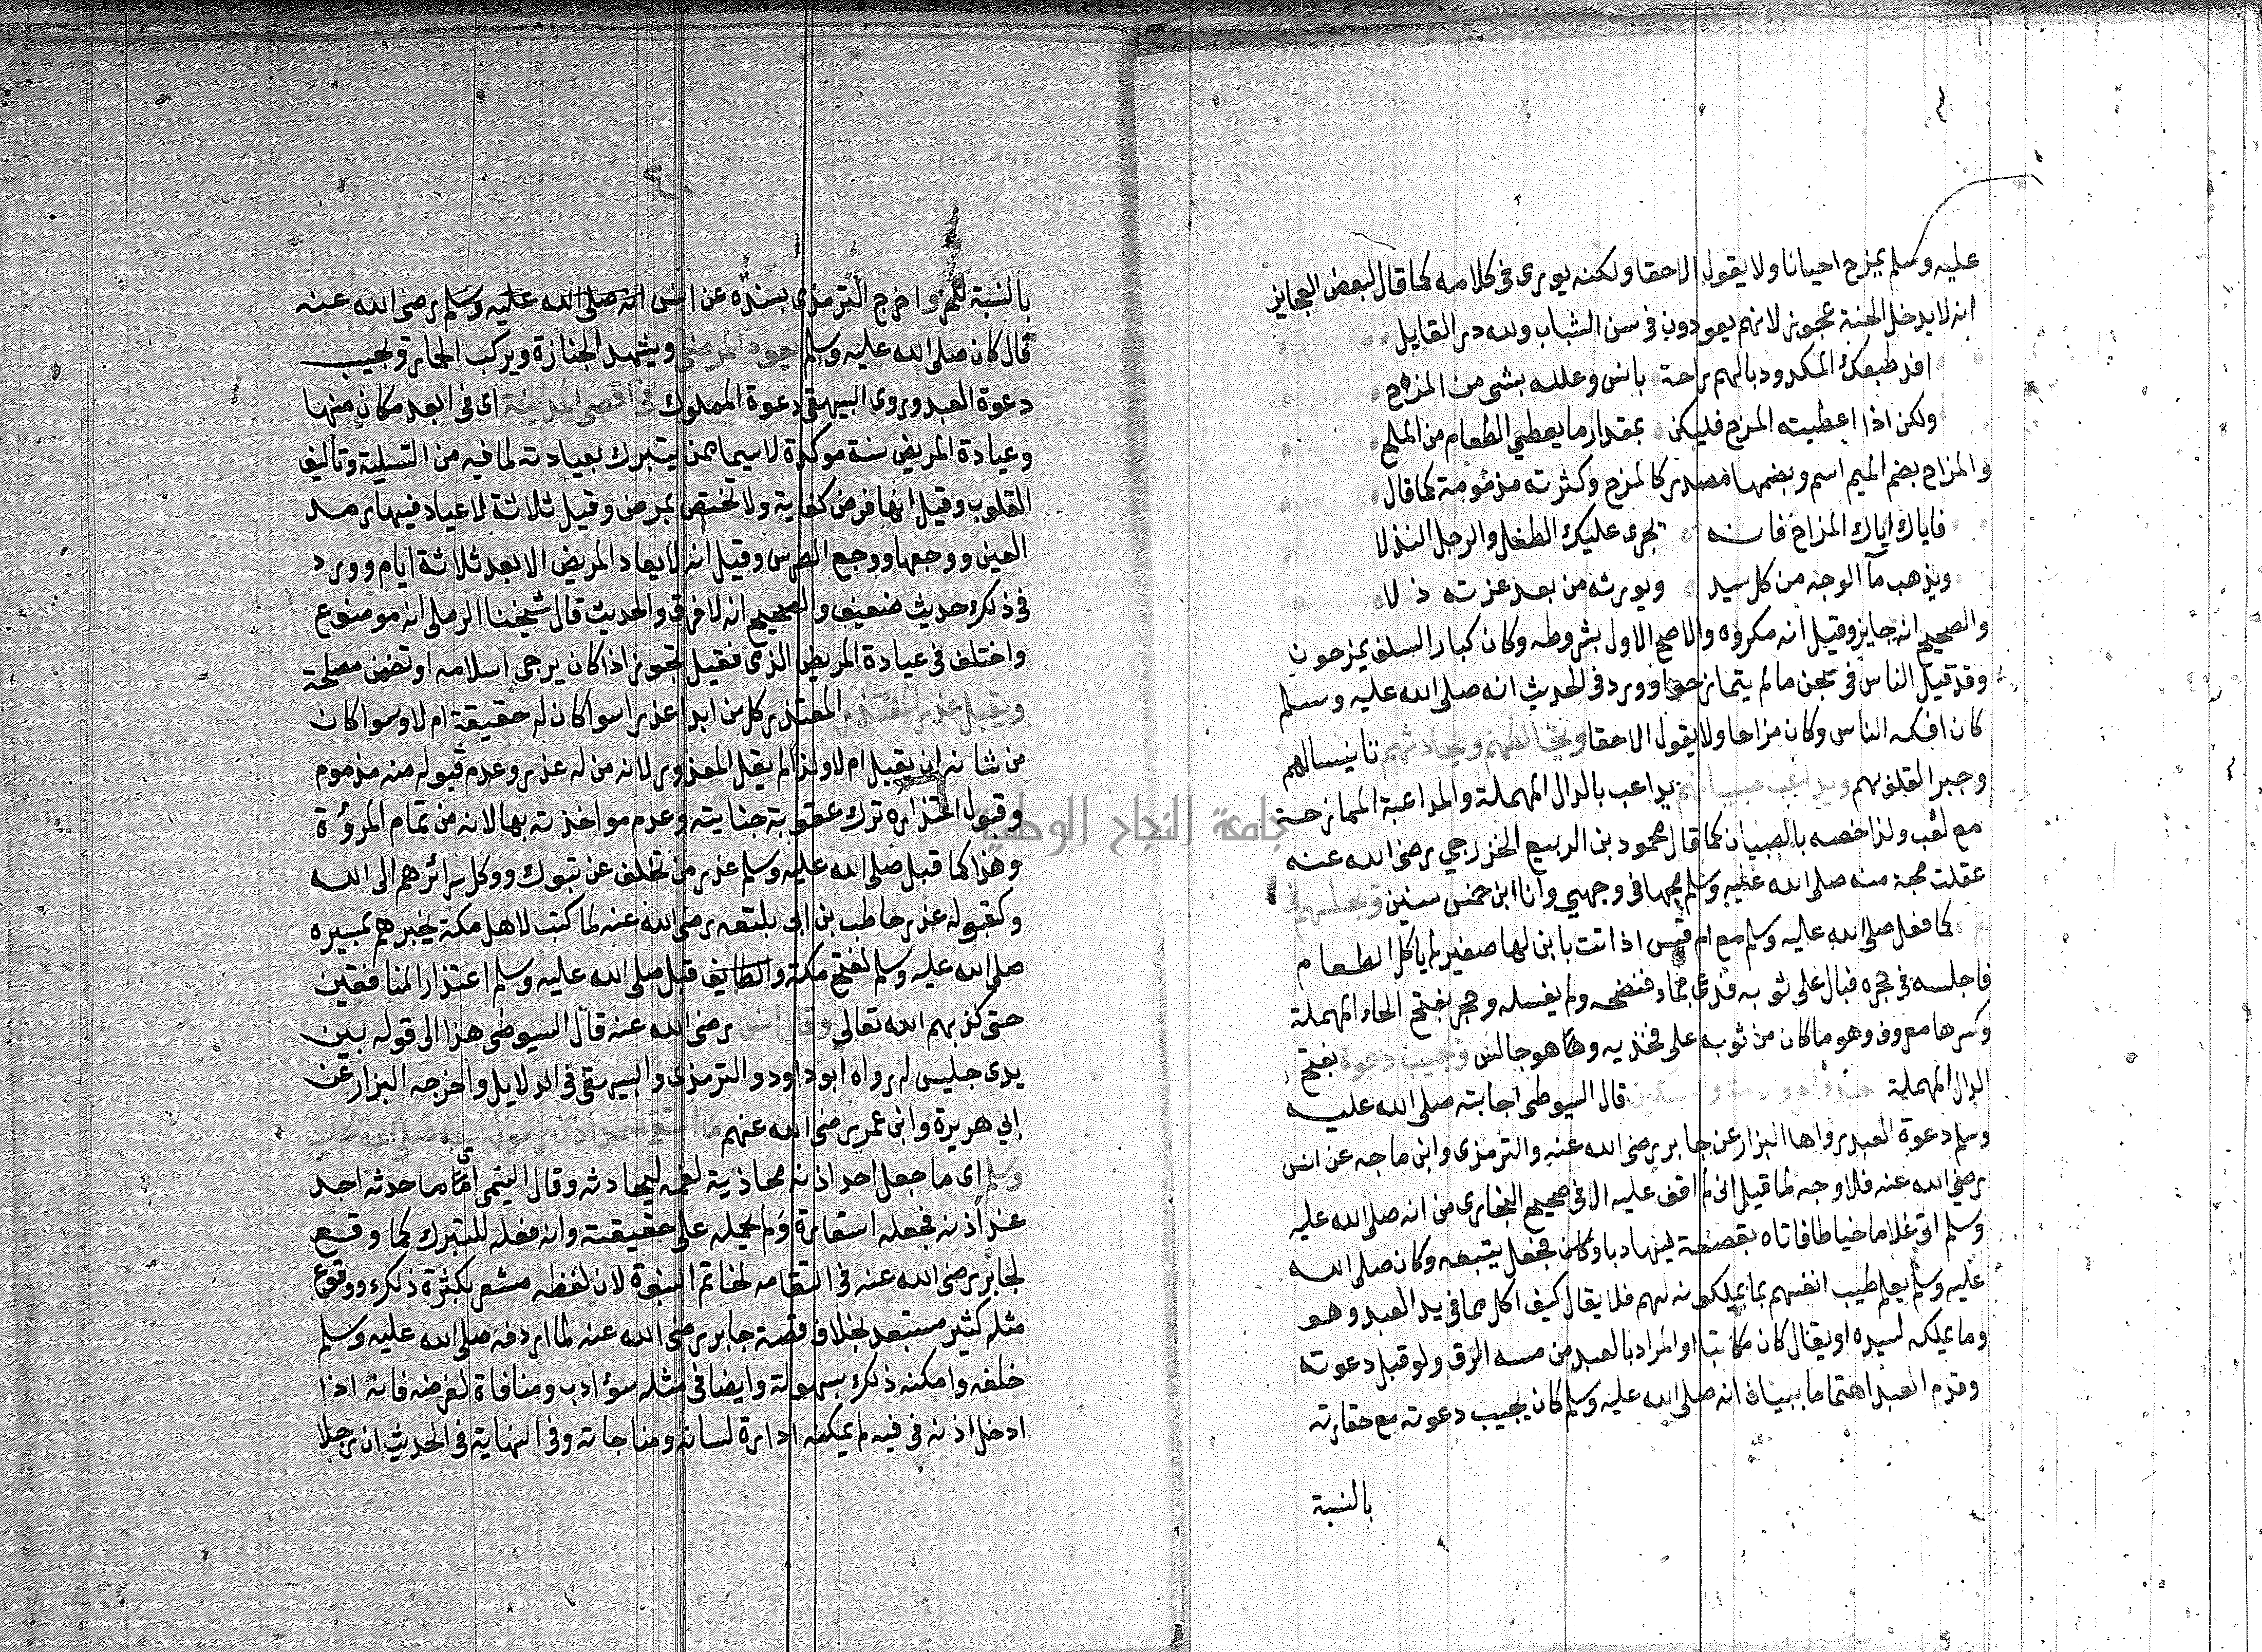 عليه وسلم يمزح احيانا ولا يقول الا حقا ولكنه يورى فى كلامه كما قال لبعض العجايز
انه لا يدخل الجنة عجوز لانهم يعودون فى سن الشباب ولله در القايل
افد طبعك المكدود بالهم راحة بانس وعلله بشى من المزاح
ولكن اذا اعطيته المزح فليكن بمقدار ما يعطي الطعام من الملح
والمزاح بضم الميم اسم وبضمها مصدر كالمزح وكثرته مذمومة كما قال
فاياك اياك المزاح فانه يجرى عليك الطفل والرجل النذلا
ويذهب مآ الوجه من كل سيد ويورثه من بعد عزته ذلا
والصحيح انه جايز وقيل انه مكروه والاصح الاول بشروطه وكان كبار السلف يمزحون
وقد قيل الناس فى سجن ما لم يتمازحوا وورد فى الحديث انه صلى الله عليه وسلم
كان افكه الناس وكان مزاحا ولا يقول الا حقا ويخالطهم ويحادثهم تانيسا لهم
وجبرا لقلوبهم ويداعب صبيانهم يداعب بالدال المهملة والمداعبة الممازحة
مع لعب ولذا خصه بالصبيان كما قال محمود بن الربيع الخزرجي رضى الله عنه
عقلت مجة منه صلى الله عليه وسلم مجها فى وجهي وانا ابن خمس سنين ويجلسهم فى
كما فعل صلى الله عليه وسلم مع ام قيس اذ اتت بابن لها صغير لم ياكل الطعام
فاجلسه فى حجره فبال على ثوبه فدعى بماء فنضحه ولم يغسله وحجر بفتح الحاء المهملة
وكسرها معروف وهو ما كان من ثوبه على فخذيه وها هو جالس ويجيب دعوة بفتح
الدال المهملة قال السيوطى اجابته صلى الله عليه
وسلم دعوة العبد رواها البزار عن جابر رضى الله عنه والترمذى وابن ماجه عن انس
رضى الله عنه فلا وجه لما قيل انى لم اقف عليه الا فى صحيح البخارى من انه صلى الله عليه
وسلم اتى غلاما خياطا فاتاه بقصعة فيها دبا وكان فجعل يتبعه وكان صلى الله
عليه وسلم يعلم طيب انفسهم بما يملكونه لهم فلا يقال كيف اكل مما فى يد العبد وهو
وما يملكه لسيده او يقال كان مكاتبا او المراد بالعبد من مسه الرق ولو قبل دعوته
وقدم العبد اهتماما ببيان انه صلى الله عليه وسلم كان يجيب دعوته مع حقارته
بالنسبة
بالنسبة واخرج الترمذى بسنده عن انس انه صلى الله عليه وسلم رضى الله عنه
قال كان صلى الله عليه وسلم يعود المرضى ويشهد الجنازة ويركب الحمار ويجيب
دعوة العبد وروى البيهقى دعوة المملوك فى اقصى المدينة اى فى ابعد مكان منها
وعيادة المريض سنة موكدة لاسيما ممن يتبرك بعيادته لما فيه من التسلية وتاليف
القلوب وقيل انها فرض كفاية ولا تختص بمرض وقيل ثلاثة لا عياد فيها رمد
العين ووجعها ووجع الضرس وقيل انه لا يعاد المريض الا بعد ثلاثة ايام وورد
فى ذلك حديث ضعيف والصحيح انه لا فرق والحديث قال شيخنا الرملى انه موضوع
واختلف فى عيادة المريض الذى فقيل تجوز اذا كان يرجى اسلامه او تضمن مصلحة
ويقبل عذر المعتذر المعتذر كل من ابدا عذرا سوا كان له حقيقة ام لا وسوا كان
من شانه ان يقبل ام لا ولذا لم يقل المعذور لانه من له عذر وعدم قبوله منه مذموم
وقبول اعتذاره ترك عقوبة جنايته وعدم مواخذته بها لانه من تمام المروءة
وهذا كما قبل صلى الله عليه وسلم عذر من تخلف عن تبوك ووكل سرائرهم الى الله
وكقبوله عذر حاطب بن ابى بلتعه رضى الله عنه لما كتب لاهل مكة يخبرهم بمسيره
صلى الله عليه وسلم لفتح مكة والطايف قبل صلى الله عليه وسلم اعتذار المنافقين
حتى كذبهم الله تعالى وقال انس رضى الله عنه قال السيوطى هذا الى قوله بين
يدى جليس له رواه ابو داود والترمذى والبيهقى فى الدلايل واخرجه البزار عن
ابي هريرة وابن عمر رضى الله عنهم ما التقم احد اذن رسول الله صلى الله عليه
وسلم اى ما جعل احد اذنه محاذية لفمه ليحادثه وقال التيمى اى ما حدثه احد
عند اذنه فجعله استعارة ولم يحمله على حقيقته وانه فعله للتبرك كما وقع
لجابر رضى الله عنه فى التقامه لخاتم النبوة لان لفظه مشعر بكثرة ذلك ووقوع
مثله كثير مستبعد بخلاف قصة جابر رضى الله عنه لما اردفه صلى الله عليه وسلم
خلفه وامكنه ذلك بسهولة وايضا فى مثله سوء ادب ومنافاة لغرضه فانه اذا
ادخل اذنه فى فيه لم يمكنه ادارة لسانه ومناجاته وفى النهاية فى الحديث ان رجلا
جامعة النجاح الوطنية